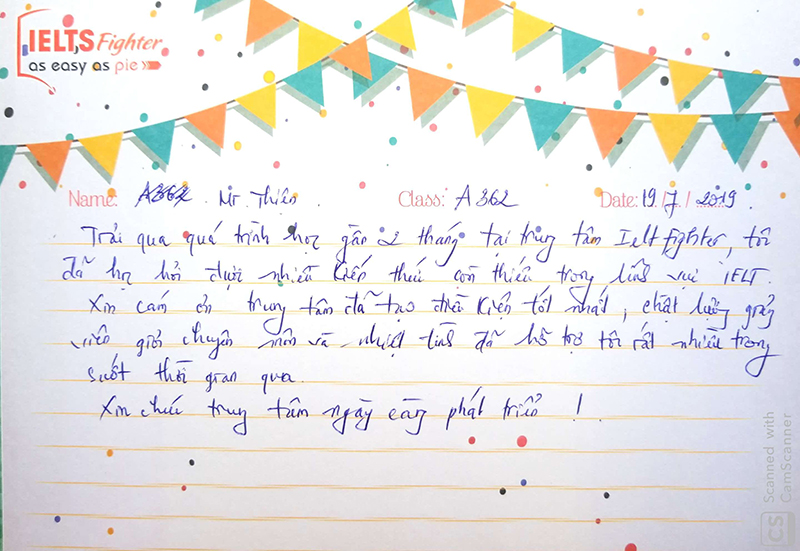 IELTS Fighter
as easy as pie
Name: A362 Mr Thiên. Class: A362 Date: 19/7/2019.
Trải qua quá trình học gần 2 tháng tại trung tâm Ielt fighter, tôi
đã học hỏi được nhiều kiến thức còn thiếu trong lĩnh vực IELT.
Xin cám ơn trung tâm đã tạo điều kiện tốt nhất, chất lượng giảng
viên giỏi chuyên môn và nhiệt tình đã hỗ trợ tôi rất nhiều trong
suốt thời gian qua.
Xin chúc trung tâm ngày càng phát triển !
Scanned with
CamScanner
CS